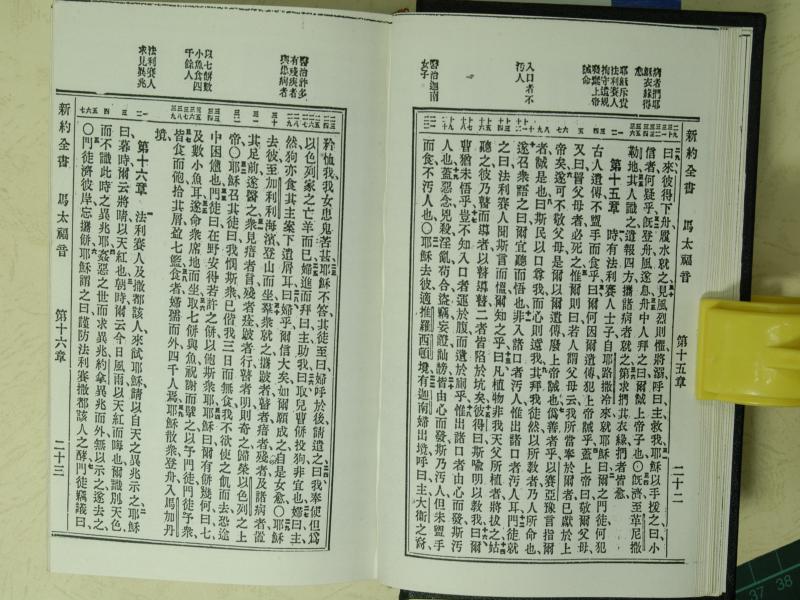 新約全書 馬太福音 第十五章 二十二
病者捫耶
穌衣緣得
愈
耶穌斥責
法利賽人
拘守遺規
入口者不
污人
醫治迦南
女子
曰來彼得下舟履水就之見風烈則懼將溺呼曰主救我耶穌以手援之曰小
信者何疑乎既登舟風遂息舟中人拜之曰爾誠上帝子也〇既濟至革尼撒
勒地其人識之遣報四方攜諸病者就之第求捫其衣緣捫者皆愈
第十五章 時有法利賽人士子自耶路撒冷來就耶穌曰爾之門徒何犯
古人遺傳不盥手而食乎曰爾何因爾遺傳犯上帝誡乎蓋上帝曰敬爾父母
又曰詈父母者必死之惟爾則曰若人謂父母云我所當奉於爾者已獻於上
帝矣遂可不敬父母是爾以爾遺傳廢上帝誡也僞善者乎以賽亞豫言指爾
者誠是也曰斯民以口尊我而心則遠我其拜我徒然以所教者乃人所命也
遂召衆語之曰爾宜聽而悟也非入諸口者汚人惟出諸口者汚人耳門徒就
之曰法利賽人聞斯言而慍爾知之乎曰凡植物非我天父所植者將拔之姑
聽之彼乃瞽而導者以瞽導瞽二者皆陷於坑矣彼得曰斯喩明以敎我曰爾
曹猶未悟乎豈不知入口者運於腹而遺於廁乎惟出諸口者由心而發斯汚
人也蓋惡念兇殺淫亂苟合盜竊妄證訕謗皆由心而發斯乃汚人但未盥手
而食不汚人也〇耶穌去彼適推羅西頓境有迦南婦出境呼曰主大衞之裔
新約全書 馬太福音 第十六章 二十三
醫治許多
有殘疾者
與患病者
以七餅數
小魚食四
千餘人
法利賽人
求見異兆
矜恤我我女患鬼苦甚耶穌不答其徒至曰婦呼於後請遣之曰我奉使但爲
以色列家之亡羊而已婦進而拜曰主助我曰取兒曹餅投狗非宜也婦曰主
然狗亦食其主案下遺屑耳曰婦乎爾信大矣如爾願成之自是女愈〇耶穌
去彼至加利利海濱登山而坐羣衆就之攜跛者瞽者瘖者殘者及諸病者置
其足前遂醫之衆見瘖者言殘者痊跛者行瞽者明則奇之歸榮以色列之上
帝〇耶穌召其徒曰我憫斯衆已偕我三日而無食我不欲使之飢而去恐途
中困憊也門徒曰在野安得若許之餅以飽斯衆耶耶穌曰爾有餅幾何曰七
及數小魚耳遂命衆席地而坐取七餅與魚祝謝而擘之以予門徒門徒予衆
皆食而飽拾其屑盈七籃食者婦孺而外四千人焉耶穌散衆登舟入馬加丹
境
第十六章 法利賽人及撒都該人來試耶穌請以自天之異兆示之耶穌
曰暮時爾云將晴以天紅也朝時爾云今日風雨以天紅而晦也爾識別天色
而不識此時之異兆耶姦惡之世而求異兆約拿異兆而外無以示之遂去之
〇門徒濟彼岸忘攜餅耶穌謂之曰謹防法利賽撒都該人之酵門徒竊議曰
37 38